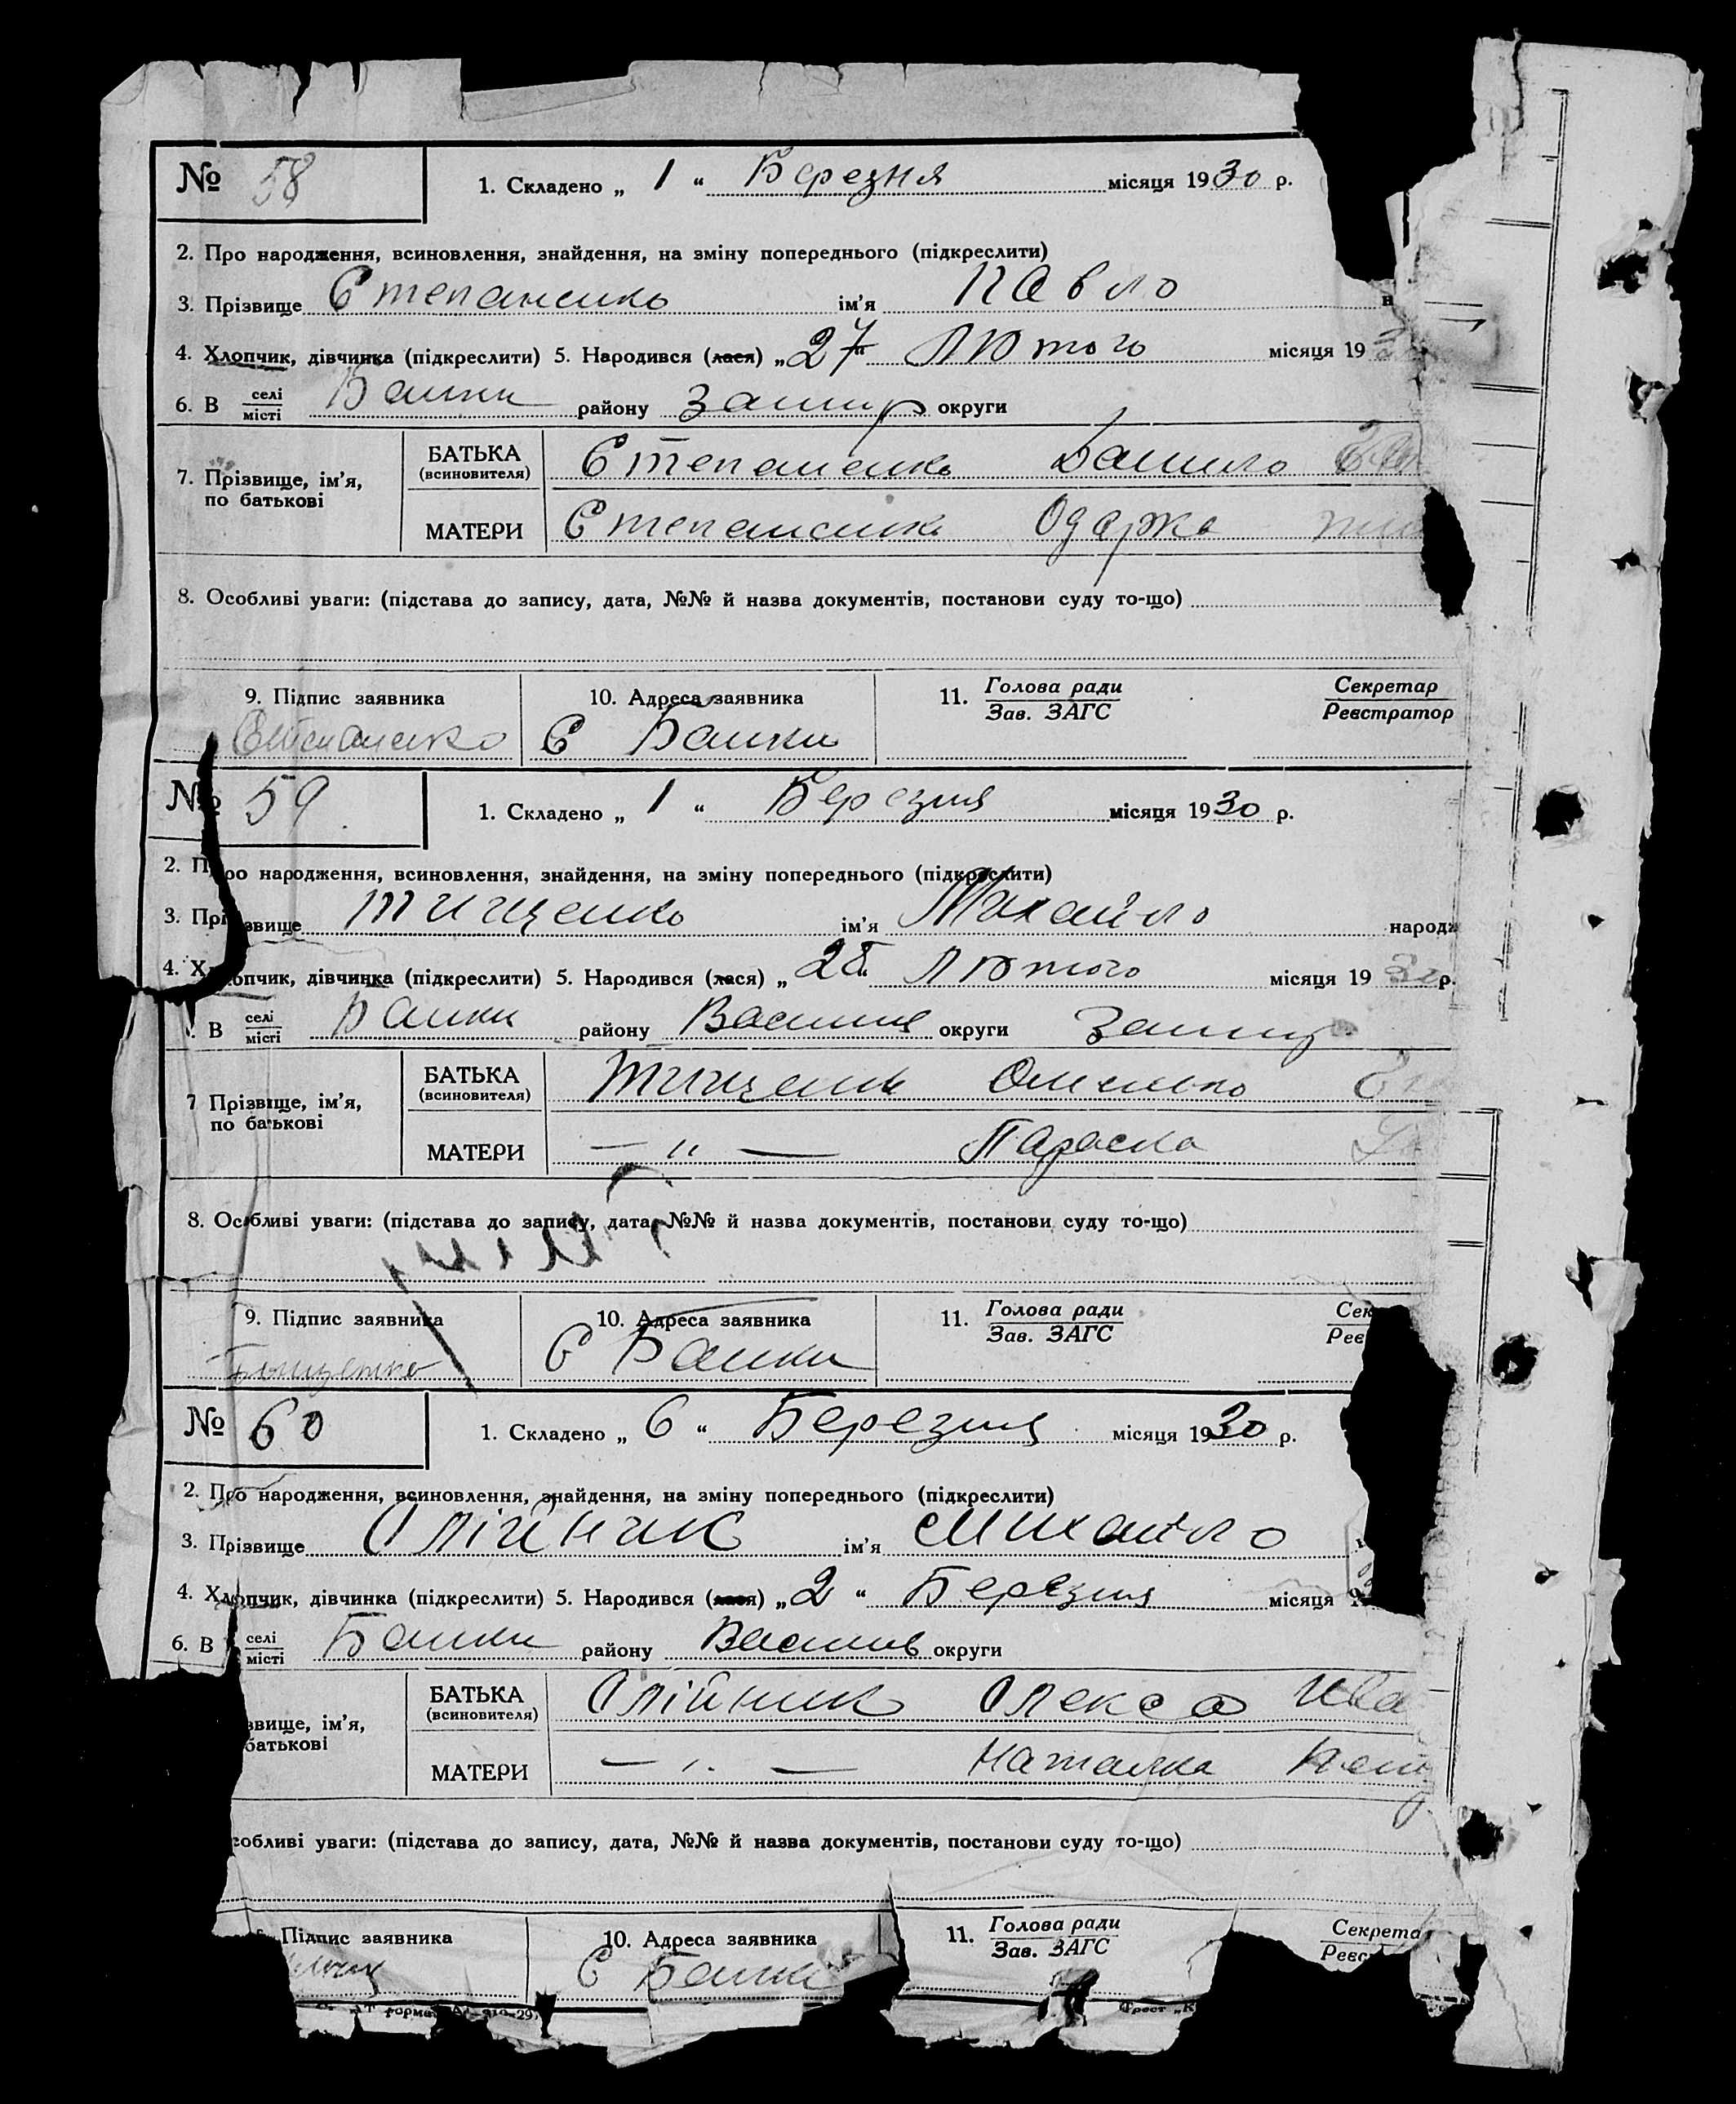 № 58 1. Складено „ 1 “ Березня місяця 1930 р.
2. Про народження, всиновлення, знайдення, на зміну попереднього (підкреслити)
3. Прізвище Степаненко ім’я Павло
4. Хлопчик, дівчинка (підкреслити) 5. Народився (лася) „ 27 “ Лютого місяця 19
6. В селі місті Банки району округи
7. Прізвище, ім’я, по батькові БАТЬКА (всиновителя) Степаненко Данило
МАТЕРИ Степаненко Одарка
8. Особливі уваги: (підстава до запису, дата, №№ й назва документів, постанови суду то-що)
9. Підпис заявника 10. Адреса заявника 11. Голова ради Зав. ЗАГС Секретар Реєстратор
Степаненко С Банки
№ 59 1. Складено „ 1 “ Березня місяця 1930 р.
2. Про народження, всиновлення, знайдення, на зміну попереднього (підкреслити)
3. Прізвище Тищенко ім’я Михайло народж
4. Хлопчик, дівчинка (підкреслити) 5. Народився (лася) „ 28 “ Лютого місяця 1930 р.
В селі місті Банки району округи
7 Прізвище, ім’я, по батькові БАТЬКА (всиновителя) Тищенко Омелько
МАТЕРИ — „ — Параска
8. Особливі уваги: (підстава до запису, дата, №№ й назва документів, постанови суду то-що)
9. Підпис заявника 10. Адреса заявника 11. Голова ради Зав. ЗАГС Сек Реє
Тищенко С Банки
№ 60 1. Складено „ 6 “ Березня місяця 1930 р.
2. Про народження, всиновлення, знайдення, на зміну попереднього (підкреслити)
3. Прізвище Олійник ім’я Михайло
4. Хлопчик, дівчинка (підкреслити) 5. Народився (лася) „ 2 “ Березня місяця
6. В селі місті Банки району округи
звище, ім’я, батькові БАТЬКА (всиновителя) Олійник Олекса Ива
МАТЕРИ — „ — Наталка
собливі уваги: (підстава до запису, дата, №№ й назва документів, постанови суду то-що)
Підпис заявника 10. Адреса заявника 11. Голова ради Зав. ЗАГС Секрета Реєс
С Банки